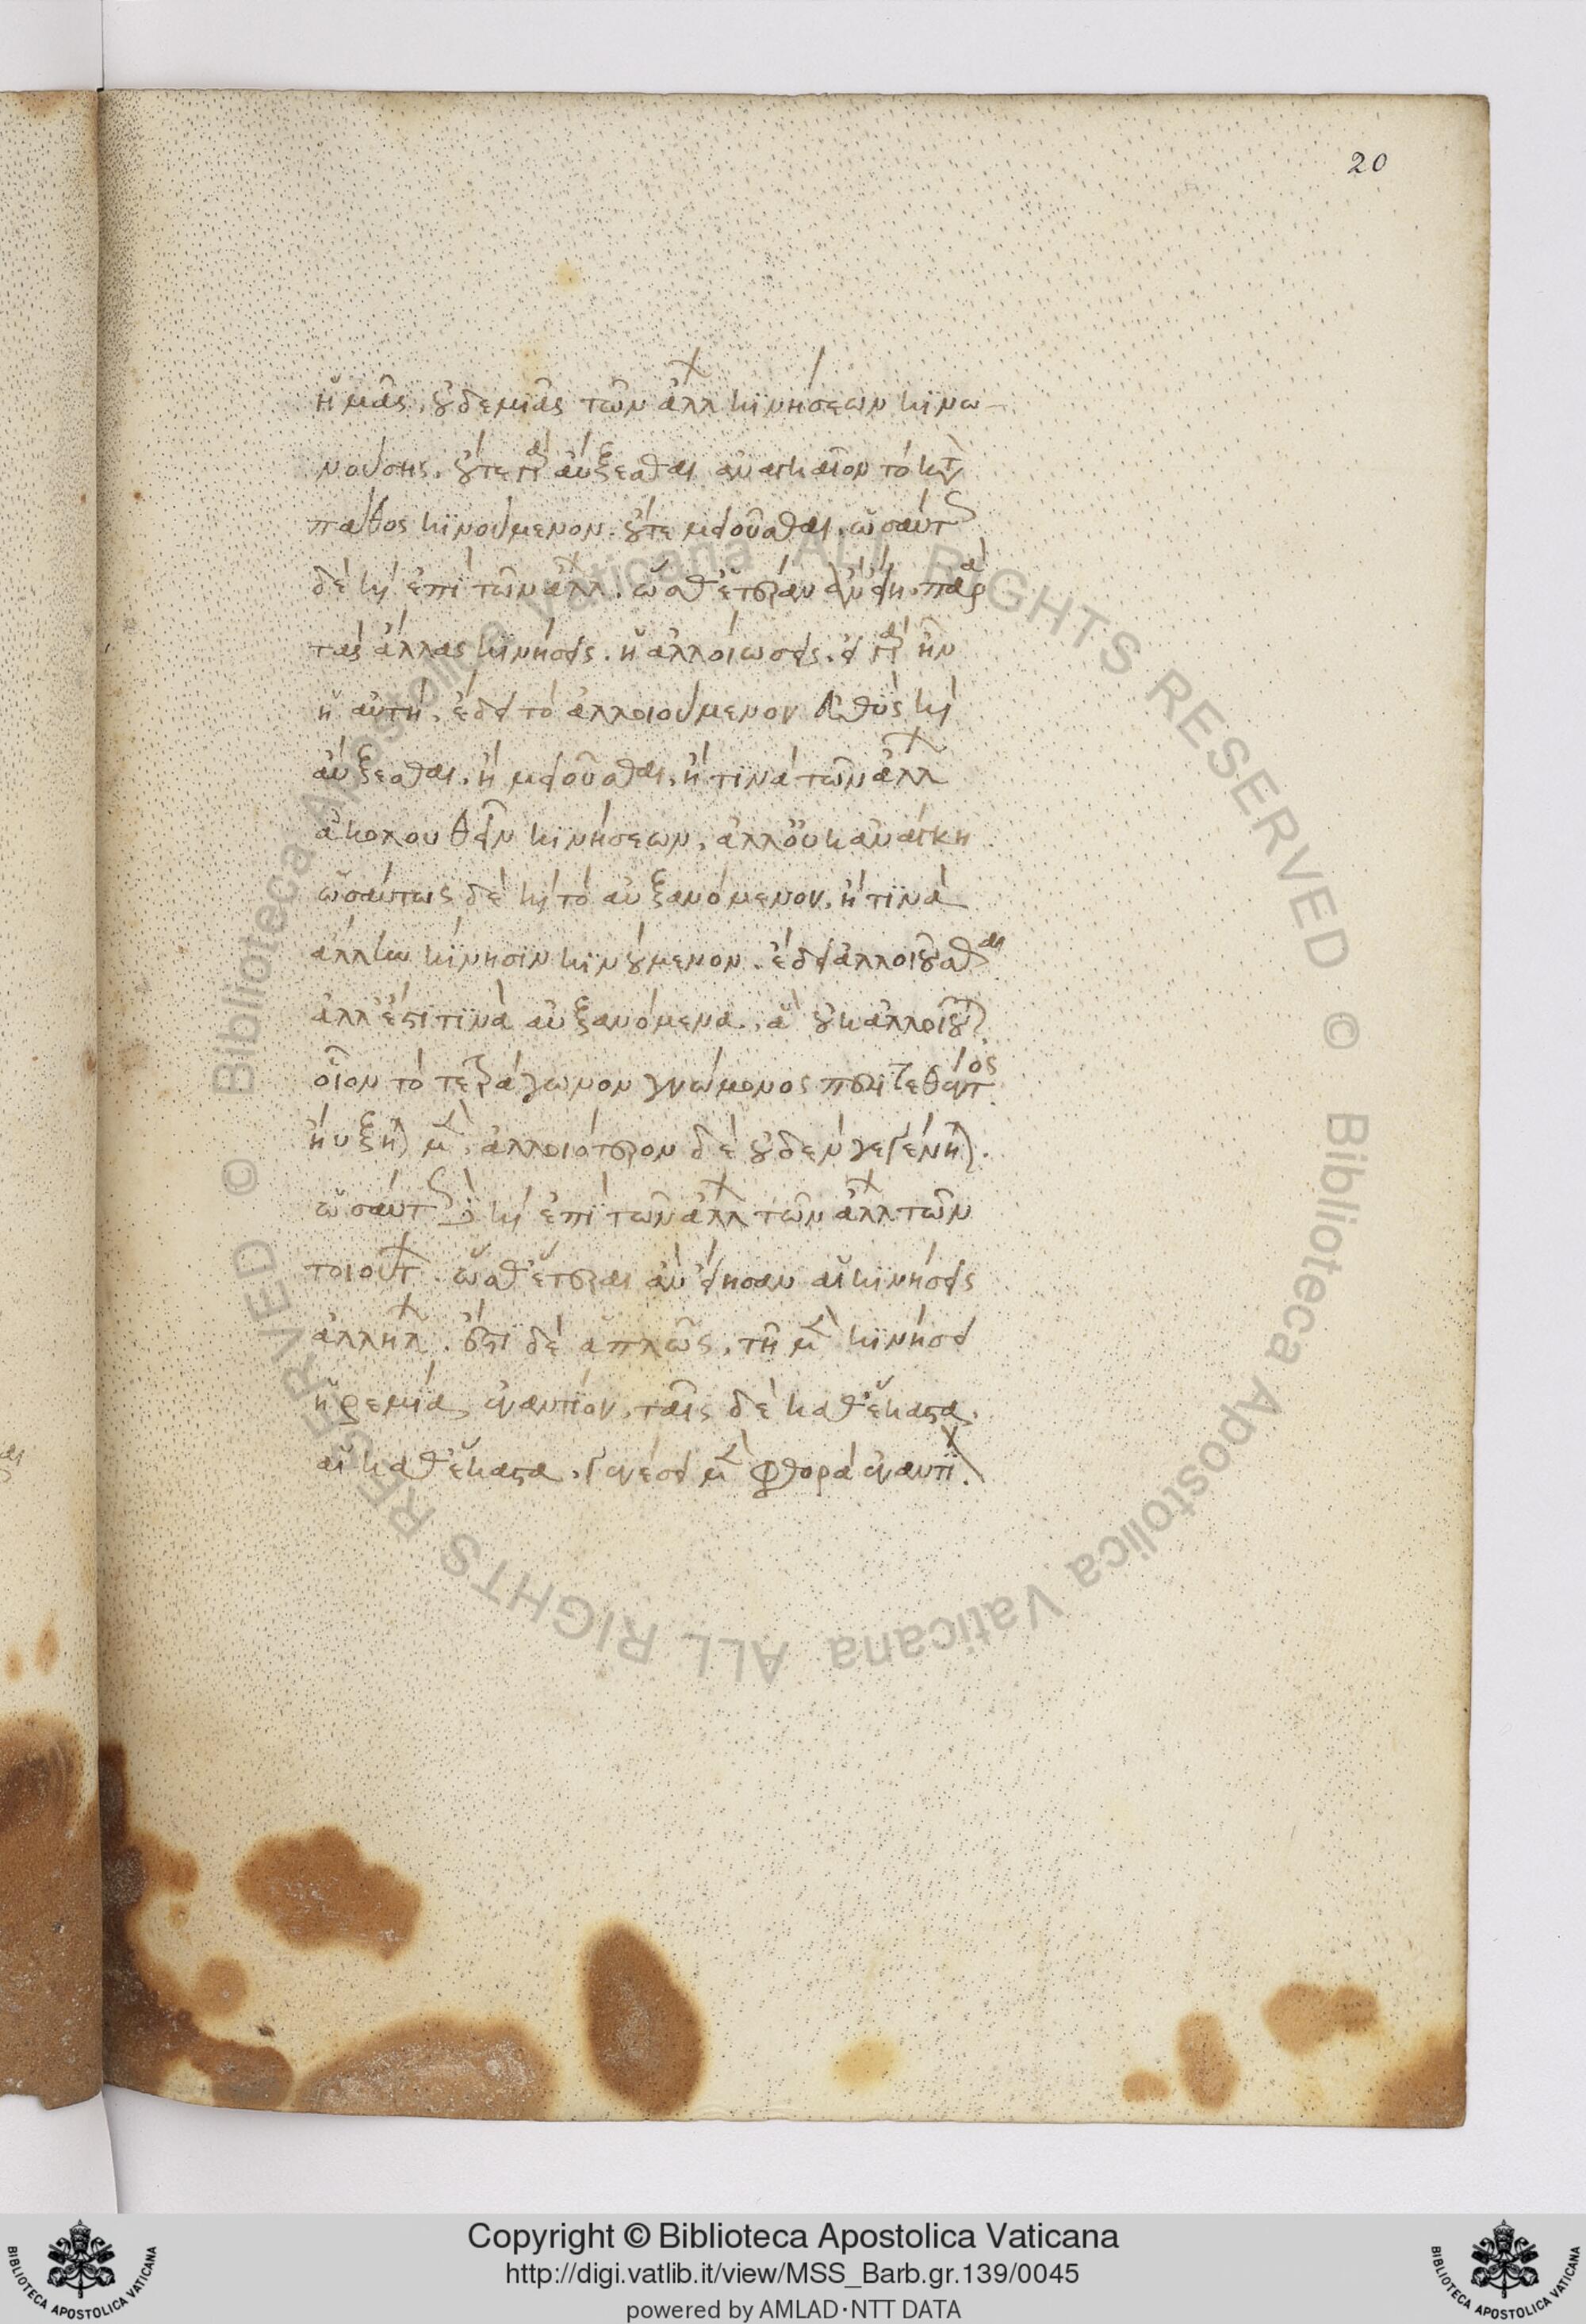 20
ἡμᾶς, οὐδεμιᾶς τῶν ἄλλ κινήσεων κινω
νούσης. οὔτε γὰρ αὔξεσθαι ἀναγκαῖον τὸ κατὰ
πάθος κινούμενον. οὔτε μειοῦσθαι. ὡσαύτως
δὲ καὶ ἐπὶ τῶν ἄλλ. ὥσθ' ἑτέρα ἂν εἴη παρὰ
τὰς ἄλλας κινήσεις. ἡ ἀλλοίωσις. εἰ γὰρ ἦν
ἡ αὐτή, ἔδει τὸ ἀλλοιούμενον εὐθὺς καὶ
αὔξεσθαι. ἢ μειοῦσθαι. ἤ τινα τῶν ἄλλ
ἀκολουθεῖν κινήσεων. ἀλλ' οὐκ ἀνάγκη
ὡσαύτως δὲ καὶ τὸ αὐξανόμενον. ἤ τινα
ἄλλην κίνησιν κινούμενον. ἔδει ἀλλοιοῦσθαι
ἀλλ' ἔστι τινὰ αὐξανόμενα, ἃ οὐκ ἀλλοιοῦται
οἷον τὸ τετράγωνον γνώμονος περιτεθέντος
ηὔξηται μὲν. ἀλλοιότερον δὲ οὐδὲν γεγένηται.
ὡσαύτως δὲ καὶ ἐπὶ τῶν ἄλλ τῶν ἄλλ τῶν
τοιούτ. ὥσθ' ἕτεραι ἂν εἴησαν αἱ κινήσεις
ἀλλήλ. ἔστι δὲ ἁπλῶς, τῇ μὲν κινήσει
ἠρεμία ἐναντίον, ταῖς δὲ καθ' ἕκαστα
αἱ καθ' ἕκαστα. γενέσει μὲν φθορὰ ἐναντί
Copyright © Biblioteca Apostolica Vaticana
http://digi.vatlib.it/view/MSS_Barb.gr.139/0045
powered by AMLAD·NTT DATA
BIBLIOTECA APOSTOLICA VATICANA
BIBLIOTECA APOSTOLICA VATICANA
© Biblioteca Apostolica Vaticana ALL RIGHTS RESERVED © Biblioteca Apostolica Vaticana ALL RIGHTS RESERVED